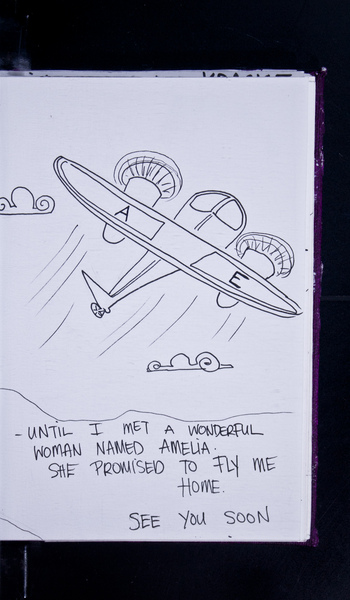 A
E
-UNTIL I MET A WONDERFUL
WOMAN NAMED AMELIA.
SHE PROMISED TO FLY ME
HOME.
SEE YOU SOON